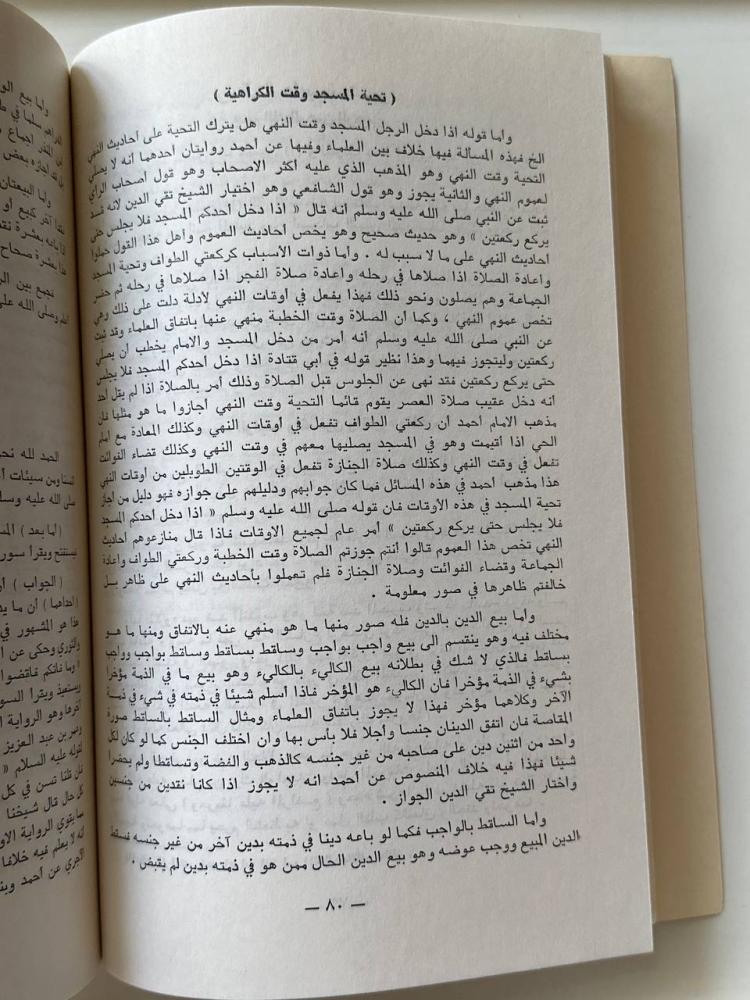 ( تحية المسجد وقت الكراهية )
وأما قوله اذا دخل الرجل المسجد وقت النهي هل يترك التحية على أحاديث النهي
الخ فهذه المسألة فيها خلاف بين العلماء وفيها عن أحمد روايتان أحدهما أنه لا يصلي
التحية وقت النهي وهو المذهب الذي عليه أكثر الاصحاب وهو قول اصحاب الرأي
لعموم النهي والثانية يجوز وهو قول الشافعي وهو اختيار الشيخ تقي الدين لانه قد
ثبت عن النبي صلى الله عليه وسلم أنه قال « اذا دخل أحدكم المسجد فلا يجلس حتى
يركع ركعتين » وهو حديث صحيح وهو يخص أحاديث العموم وأهل هذا القول حملوا
أحاديث النهي على ما لا سبب له . وأما ذوات الاسباب كركعتي الطواف وتحية المسجد
واعادة الصلاة اذا صلاها في رحله واعادة صلاة الفجر اذا صلاها في رحله ثم حضر
الجماعة وهم يصلون ونحو ذلك فهذا يفعل في أوقات النهي لأدلة دلت على ذلك وهي
تخص عموم النهي ، وكما أن الصلاة وقت الخطبة منهي عنها باتفاق العلماء وقد ثبت
عن النبي صلى الله عليه وسلم أنه أمر من دخل المسجد والامام يخطب أن يصلي
ركعتين وليتجوز فيهما وهذا نظير قوله في أبي قتادة اذا دخل أحدكم المسجد فلا يجلس
حتى يركع ركعتين فقد نهى عن الجلوس قبل الصلاة وذلك أمر بالصلاة اذا لم يقل أحد
أنه دخل عقيب صلاة العصر يقوم قائما التحية وقت النهي أجازوا ما هو مثلها فان
مذهب الامام أحمد أن ركعتي الطواف تفعل في أوقات النهي وكذلك المعادة مع امام
الحي اذا أقيمت وهو في المسجد يصليها معهم في وقت النهي وكذلك قضاء الفوائت
تفعل في وقت النهي وكذلك صلاة الجنازة تفعل في الوقتين الطويلين من أوقات النهي
هذا مذهب أحمد في هذه المسائل فما كان جوابهم ودليلهم على جوازه فهو دليل من أجاز
تحية المسجد في هذه الأوقات فان قوله صلى الله عليه وسلم « اذا دخل أحدكم المسجد
فلا يجلس حتى يركع ركعتين » أمر عام لجميع الاوقات فاذا قال منازعوهم أحاديث
النهي تخص هذا العموم قالوا أنتم جوزتم الصلاة وقت الخطبة وركعتي الطواف واعادة
الجماعة وقضاء الفوائت وصلاة الجنازة فلم تعملوا بأحاديث النهي على ظاهر بل
خالفتم ظاهرها في صور معلومة .
وأما بيع الدين بالدين فله صور منها ما هو منهي عنه بالاتفاق ومنها ما هو
مختلف فيه وهو ينقسم الى بيع واجب بواجب وساقط بساقط وساقط بواجب وواجب
بساقط فالذي لا شك في بطلانه بيع الكاليء بالكاليء وهو بيع ما في الذمة مؤخرا
بشيء في الذمة مؤخرا فان الكاليء هو المؤخر فاذا أسلم شيئا في ذمته في شيء في ذمة
الآخر وكلاهما مؤخر فهذا لا يجوز باتفاق العلماء ومثال الساقط بالساقط صورة
المقاصة فان اتفق الدينان جنسا وأجلا فلا بأس بها وان اختلف الجنس كما لو كان لكل
واحد من اثنين دين على صاحبه من غير جنسه كالذهب والفضة وتساقطا ولم يحضرا
شيئا فهذا فيه خلاف المنصوص عن أحمد انه لا يجوز اذا كانا نقدين من جنسين
واختار الشيخ تقي الدين الجواز .
وأما الساقط بالواجب فكما لو باعه دينا في ذمته بدين آخر من غير جنسه فسقط
الدين المبيع ووجب عوضه وهو بيع الدين الحال ممن هو في ذمته بدين لم يقبض .
— ٨٠ —